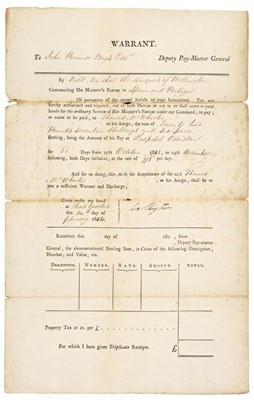 WARRANT.
To John Deputy Pay-Master General
By Field Marshal the Marquis of Wellington
Commanding His Majesty's Forces in Spain and Portugal
IN pursuance of the second Article of your Instructions: You are
hereby authorized and required, out of such Monies as are or shall come to your
hands for the ordinary Service of His Majesty's Forces under my Command, to pay, or
cause to be paid, to Thomas
or his Assign, the sum of Twenty two
Pounds seventeen Shillings and Six pence
Sterling, being the Amount of his Pay as Hospital
for 61 Days from 25th October 1813, to 24th December
following, both Days inclusive, at the rate of 7/6 per day.
And for so doing, this, with the Acquittance of the said Thomas
or his Assign, shall be to
you a sufficient Warrant and Discharge.
Given under my hand
at Head Quarters
this day of
February 1814
Wellington
RECEIVED this day of 181 from
Deputy Pay-Master
General, the abovementioned Sterling Sum, in Coins of the following Description,
Number, and Value, viz.
DESCRIPTION. NUMBER. RATE. AMOUNT. TOTAL.
Property Tax at as. per £
For which I have given Triplicate Receipts. £